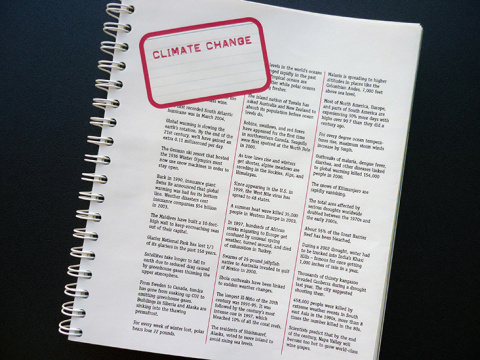 CLIMATE CHANGE
first recorded South Atlantic
hurricane was in March 2004.
Global warming is slowing the
earth's rotation. By the end of the
21st century, we'll have gained an
extra 0.11 millisecond per day.
The German ski resort that hosted
the 1936 Winter Olympics must
now use snow machines in order to
stay open.
Back in 1990, insurance giant
Swiss Re announced that global
warming was bad for its bottom
line. Weather disasters cost
insurance companies $54 billion
in 2003.
The Maldives have built a 10-foot-
high wall to keep encroaching seas
out of their capital.
Glacier National Park has lost 1/3
of its glaciers in the past 150 years.
Satellites take longer to fall to
earth due to reduced drag caused
by greenhouse gases thinning the
upper atmosphere.
From Sweden to Canada, tundra
has gone from soaking up CO2 to
emitting greenhouse gases.
Buildings in Siberia and Alaska are
sinking into the thawing
permafrost.
For every week of winter lost, polar
bears lose 22 pounds.
levels in the world's oceans
rapidly in the past
Tropical oceans are
while polar oceans
fresher.
The island nation of Tuvalu has
asked Australia and New Zealand to
absorb its population before ocean
levels do.
Robins, swallows, and red foxes
have appeared for the first time
in northwestern Canada. Seagulls
were first spotted at the North Pole
in 2000.
As tree lines rise and winters
get shorter, alpine meadows are
receding in the Rockies, Alps, and
Himalayas.
Since appearing in the U.S. in
1999, the West Nile virus has
spread to 48 states.
A summer heat wave killed 35,000
people in Western Europe in 2003.
In 1997, hundreds of African
storks migrating to Europe got
confused by unusual spring
weather, turned around, and died
of exhaustion in Turkey.
Swarms of 25-pound jellyfish
native to Australia invaded the Gulf
of Mexico in 2000.
Ebola outbreaks have been linked
to sudden weather changes.
The longest El Niño of the 20th
century was 1991-95. It was
followed by the century's most
intense one in 1997, which
bleached 10% of all the coral reefs.
The residents of Shishmaref,
Alaska, voted to move inland to
avoid rising sea levels.
Malaria is spreading to higher
altitudes in places like the
Colombian Andes, 7,000 feet
above sea level.
Most of North America, Europe,
and parts of South America are
experiencing 10% more days with
highs over 90 F than they did a
century ago.
For every degree ocean tempera-
tures rise, maximum storm wind
increases by
Outbreaks of malaria, dengue fever,
diarrhea, and other diseases linked
to global warming killed 154,000
people in 2000.
The snows of Kilimanjaro are
rapidly vanishing.
The total area affected by
serious droughts worldwide
doubled between the 1970s and
the early 2000s.
About 95% of the Great Barrier
Reef has been bleached.
During a 2002 drought, water had
to be trucked into India's Khasi
Hills – famous for once getting
1,000 inches of rain in a year.
Thousands of thirsty kangaroos
invaded Canberra during a drought
last year. The city suggested
shooting them.
458,000 people were killed by
extreme weather events in South
east Asia in the 1990s, more than 8
times the number killed in the 80s.
Scientists predict that by the end
of the century, Napa Valley will
become too hot to grow world-class
wine grapes.